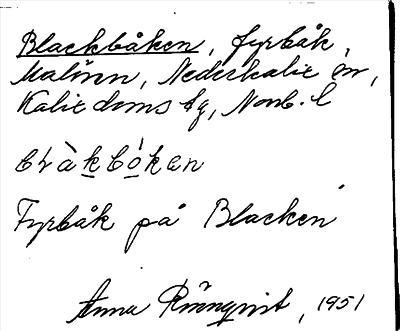 Blackbåken, fyrbåk,
Malören, Nederkalix sn,
Kalix doms sg, Norrb. l
bl̀akbóken
Fyrbåk på Blacken
Anna Rönnqvist, 1951